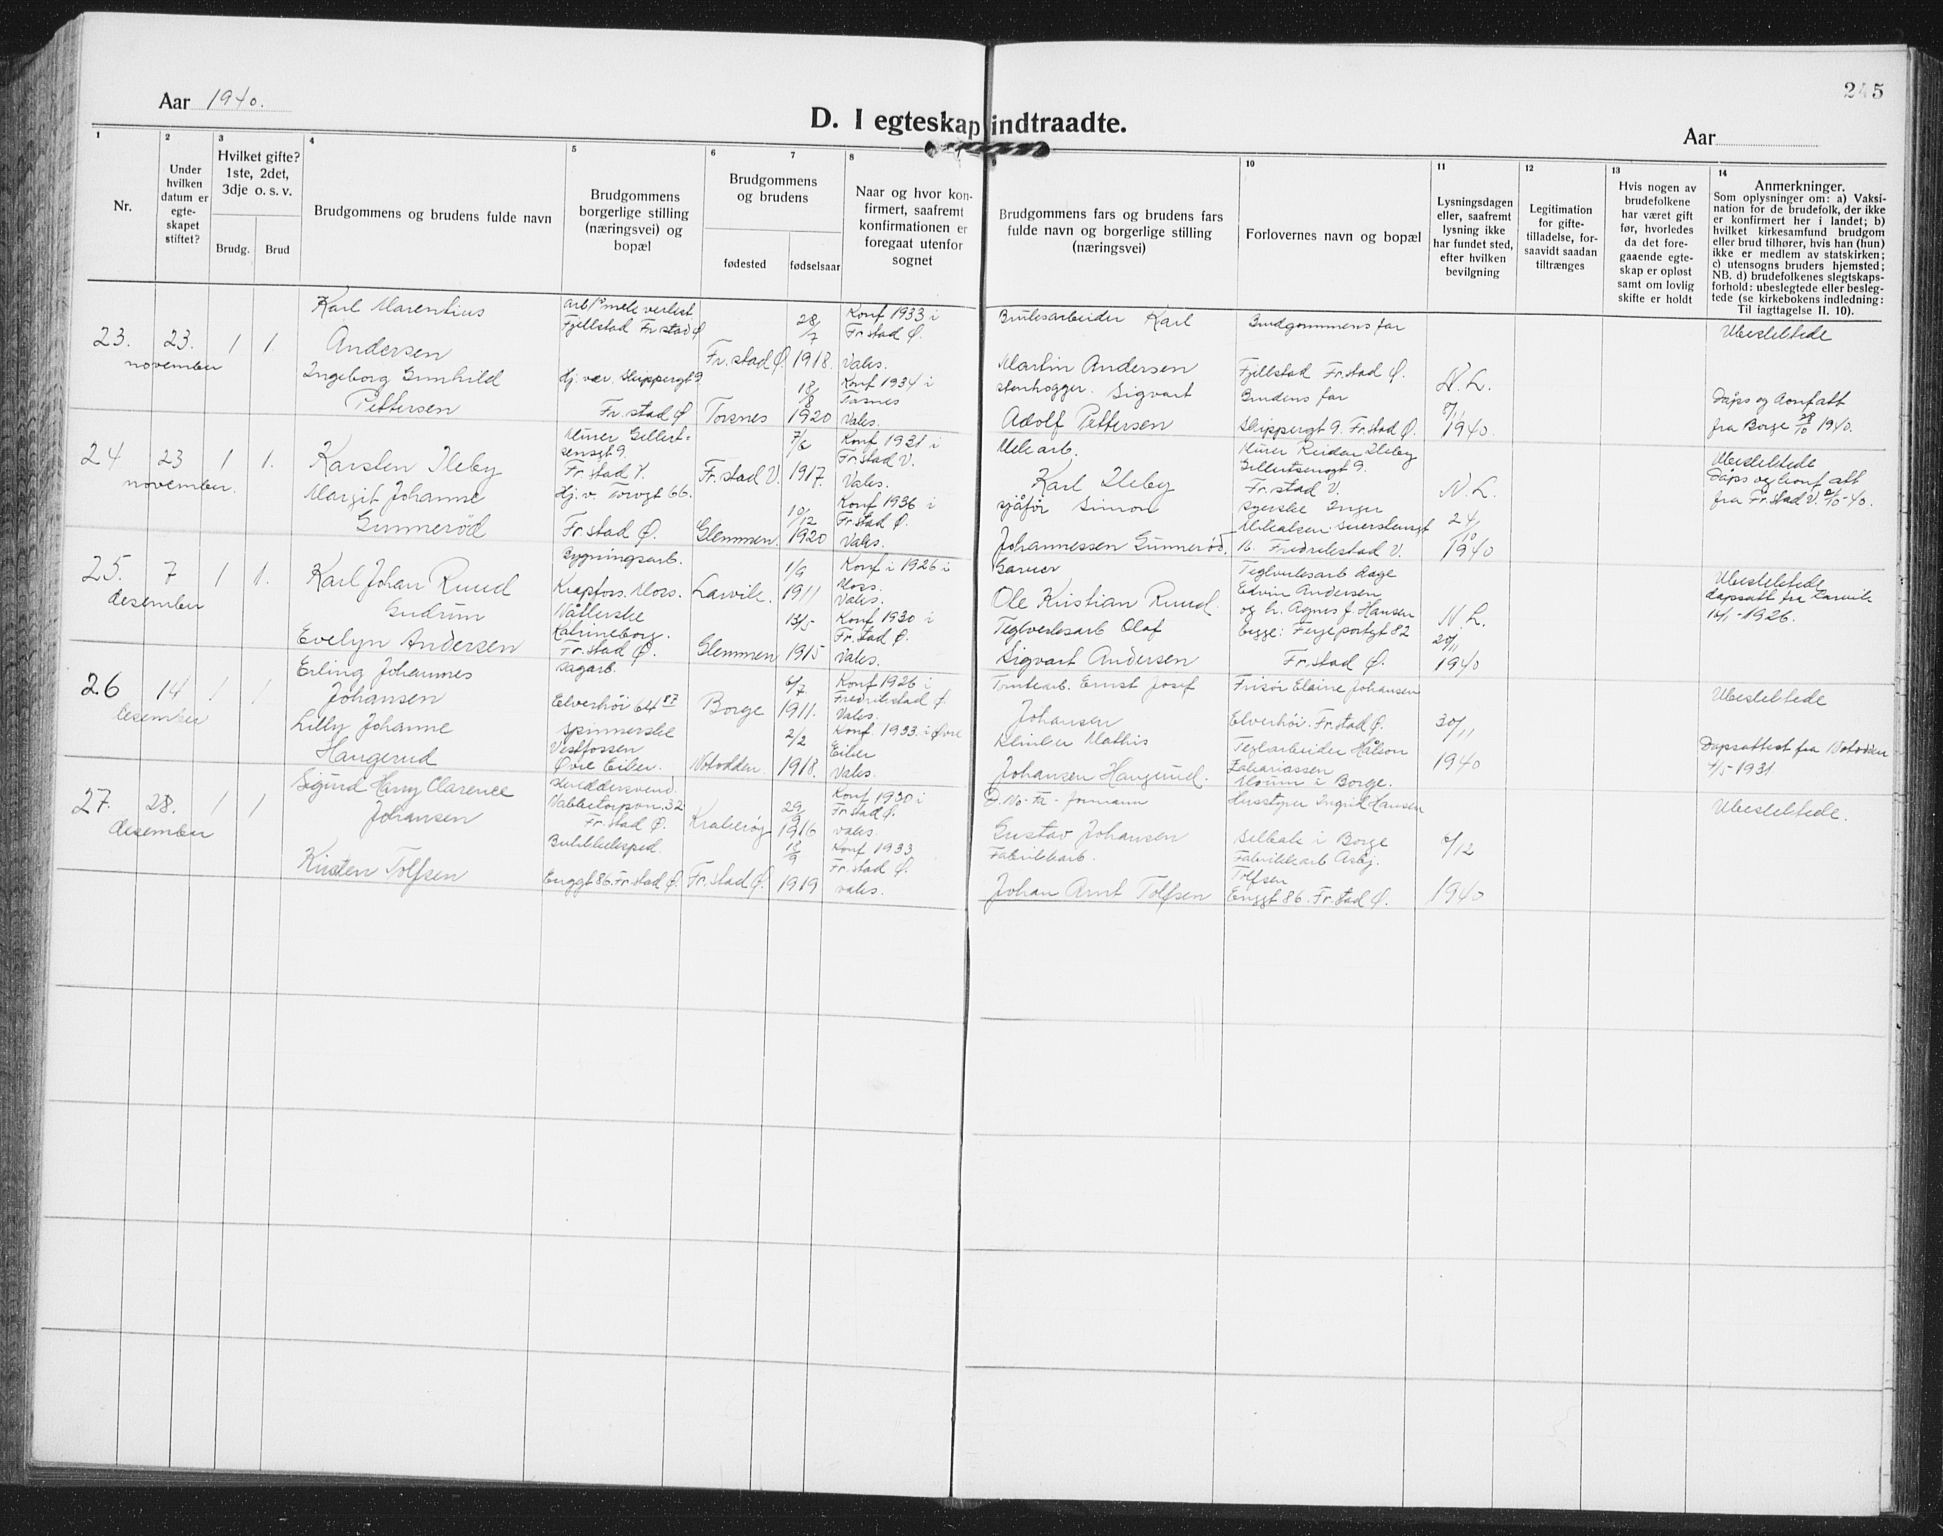 Aar 1940.
245
D. I egteskap indtraadte.
Aar
1
Nr.
2
Under
hvilken
datum er
egte-
skapet
stiftet?
3
Hvilket gifte?
1ste, 2det,
3dje o. s. v.
Brudg.
Brud
4
Brudgommens og brudens fulde navn
5
Brudgommens
borgerlige stilling
(næringsvei) og
bopæl
6
7
Brudgommens
og brudens
fødested
fødselsaar
8
Naar og hvor kon-
firmert, saafremt
konfirmationen er
foregaat utenfor
sognet
9
Brudgommens fars og brudens fars
fulde navn og borgerlige stilling
(næringsvei)
10
Forlovernes navn og bopæl
11
Lysningsdagen
eller, saafremt
lysning ikke
har fundet sted,
efter hvilken
bevilgning
12
Legitimation
for gifte-
tilladelse, for-
saavidt saadan
tiltrænges
13
Hvis nogen av
brudefolkene
har været gift
før, hvorledes
da det fore-
gaaende egte-
skap er opløst
samt om lovlig
skifte er holdt
14
Anmerkninger.
Som oplysninger om: a) Vaksi-
nation for de brudefolk, der ikke
er konfirmert her i landet; b)
hvilket kirkesamfund brudgom
eller brud tilhører, hvis han (hun)
ikke er medlem av statskirken;
c) utensogns bruders hjemsted;
NB. d) brudefolkenes slegtskaps-
forhold: ubeslegtede eller besleg-
tede (se kirkebokens indledning:
Til iagttagelse II. 10).
23.
23.
november
1
1.
Karl Marentius
Andersen
Ingeborg Gunhild
Pettersen
Fjellstad Fr.stad Ø
Hj. vær. Skippergt 9
Fr. stad Ø
Fr. stad Ø
Torsnes
28/7
1918.
18/8
1920
Konf 1933 i
Fr.stad Ø.
Vaks.
Konf 1934 i
Vaks.
Bruksarbeider Karl
Martin Andersen
stenhogger. Sigvart
Adolf Pettersen
Brudgommens far
Fjellstad Fr.stad Ø.
Brudens far
Skippergt 9. Fr.stad Ø.
N. L.
1940.
Ubeslektede
Dåps og konf att
fra Borge 28/10 1940.
24
23
november.
1
1.
Karsten Ileby
Margit Johanne
Gunnerød
Murer Gellert-
sensgt 9.
Fr. stad V.
Hj. v. Torvgt 66.
Fr. stad Ø.
Fr. stad V.
Glemmen.
7/6
1917.
10/2
1920
Konf 1931 i
Fr. stad V.
Vaks.
Konf 1936 i
Fr. stad Ø.
Vaks.
Karl Ileby
sjåfør Simon
Johannessen Gunnerød.
Murer Reidar Ileby
Gellertsensgt 9.
Fr. stad V.
syerske Inger
16. Fredrikstad V.
N. L.
24/10
1940
Ubeslektede
Dåps og konf att
fra Fr. stad V.
25.
7
desember
1
1.
Karl Johan Ruud
Gudrun
Evelyn Andersen
Bygningsarb.
Krapfoss. Moss.
Katrineborg.
Fr. stad Ø.
Larvik.
Glemmen
1/9
1911
13/5
1915
Konf i 1926 i
Moss.
Vaks.
Konf 1930 i
Fr. stad Ø.
Vaks.
Garver
Ole Kristian Ruud.
Teglverksarb Olaf
Sigvart Andersen
Edvin Andersen
og h. Agnes f. Hansen
begge: Ferjeportgt 82
Fr. stad Ø.
N. L.
20/11
1940
Ubeslektede
dåpsatt fra Larvik
14/1 - 1926.
26
14
desember
1
1
Erling Johannes
Johansen
Lilly Johanne
Haugerud
sagarb.
Elverhøi 64
spinnerske
Vestfossen
Øvre Eiker.
Borge
Notodden.
6/7
1911.
2/2
1918.
Konf 1926 i
Fredrikstad Ø.
Vaks.
Konf. 1933. i Øvre
Eiker
Vaks.
Tomtearb. Ernst Josef
Johansen
Mathis
Johansen Haugerud.
Frisør Elaine Johansen
Elverhøi. Fr. stad Ø.
Teglarbeider Håkon
Zakariassen
Moum i Borge.
30/11
1940
Ubeslektede
Dåpsattest fra Notodden
4/5 - 1931
27.
28.
desember
1
1
Sigurd Harry Clarence
Johansen
Kirsten Tolfsen
skreddersvend.
Fr. stad Ø.
Butikkeksped.
Enggt 86. Fr. stad Ø.
Kråkerøy
Fr. stad Ø.
29/9
1916
18/9
1919
Konf 1930 i
Fr. stad Ø.
vaks.
Konf 1933
Fr. stad Ø.
vaks.
Gustav Johansen
Fabrikkarb.
Johan Arnt Tolfsen
Husstyrer Ingrid Hansen
Selbak i Borge
Fabrikkarb Asbj.
Tolfsen
Enggt 86. Fr. stad Ø.
1940
Ubeslektede.